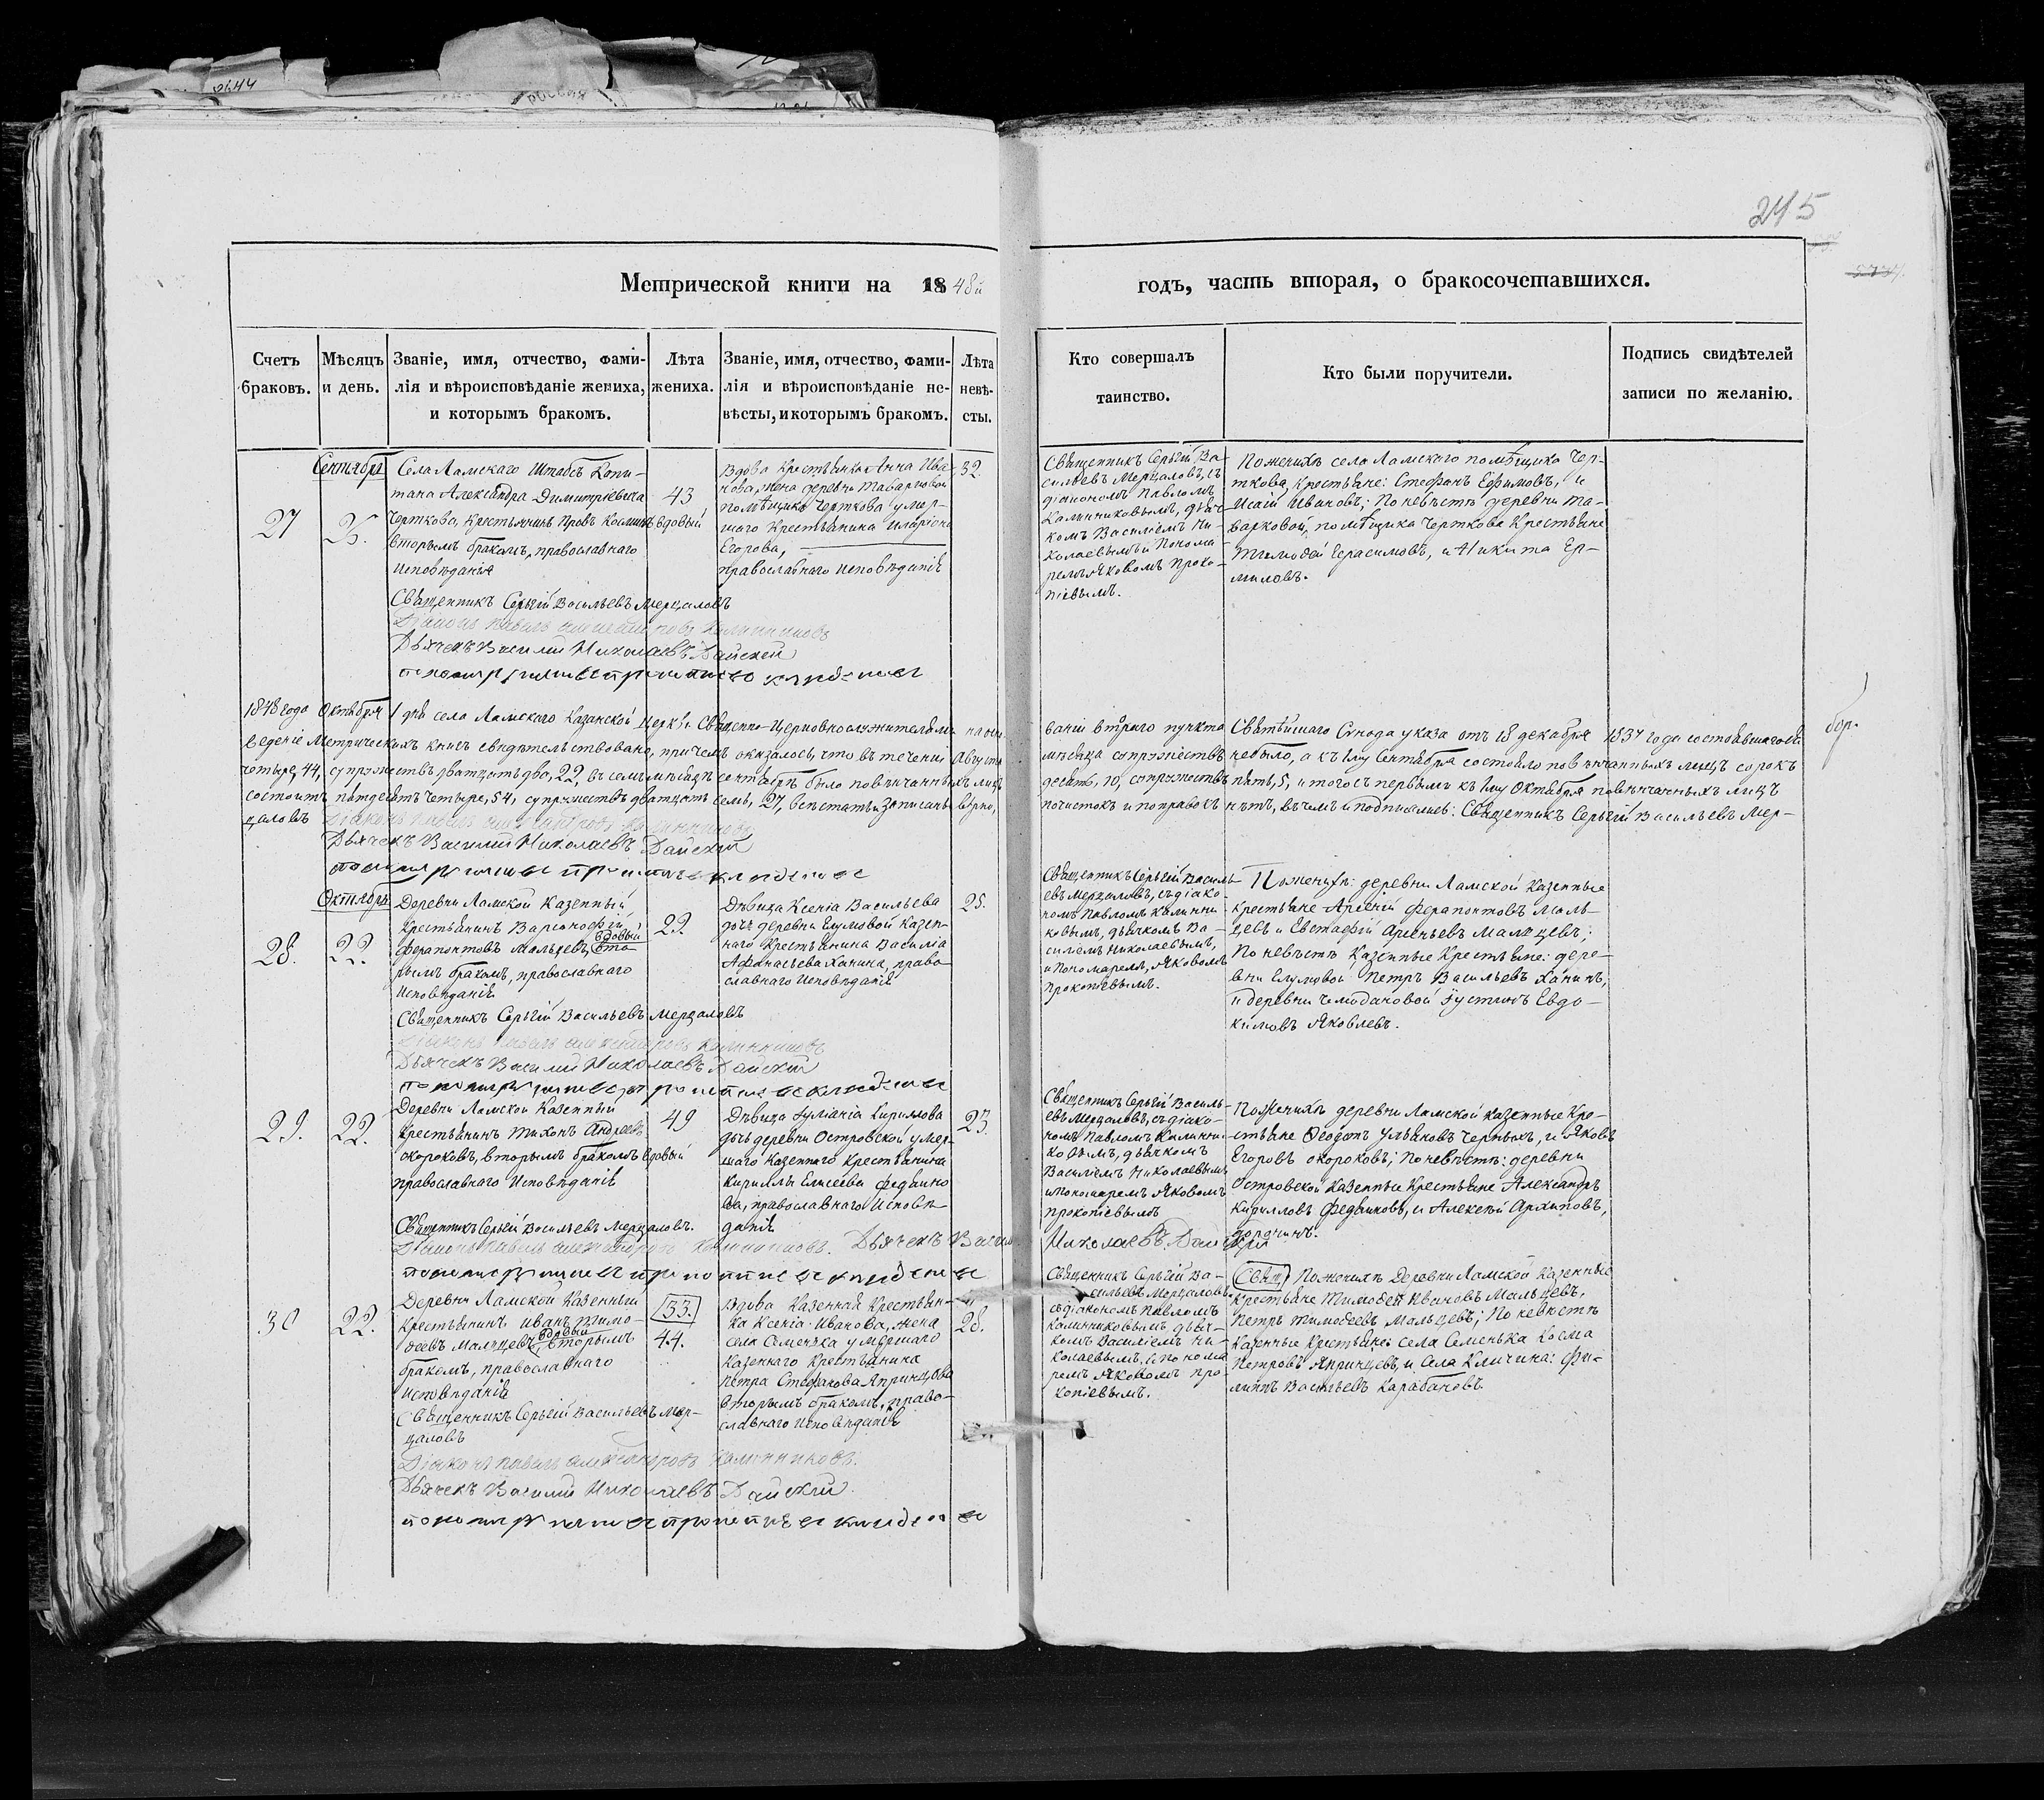 245
Метрической книги на 1848й годъ, часть вторая, о бракосочетавшихся.
Счетъ браковъ.
Мѣсяцъ и день.
Званіе, имя, отчество, фами-
лія и вѣроисповѣданіе жениха,
и которымъ бракомъ.
Лѣта жениха.
Званіе, имя, отчество, фами-
лія и вѣроисповѣданіе не-
вѣсты, и которымъ бракомъ.
Лѣта невѣ-
сты.
Кто совершалъ
таинство.
Кто были поручители.
Подпись свидѣтелей
записи по желанію.
Сентября
27
Села Ламскаго Штабсъ Капи-
тана Александра Димитріевича
Черткова, Крестьянинъ Провъ Косминъ вдовый
вторымъ бракомъ, православнаго
исповѣданія
43
Вдова крестьянка Анна Ива-
нова, жена деревни Таварковой
помѣщика Черткова умер-
шаго Крестьянина Иларіона
Егорова,
православнаго исповѣданія
32
Священникъ Сергій Ва-
сильевъ Мерцаловъ, съ
діакономъ Павломъ
Калинниковымъ, дьяч-
комъ Василіемъ Ни-
колаевымъ и Понома-
ремъ Яковомъ Проко-
піевымъ.
По женихѣ села Ламскаго помѣщика Чер-
ткова, крестьяне: Стефанъ Ефимовъ, и
Исаій Ивановъ; По невѣстѣ деревни Та-
варковой, помѣщика Черткова Крестьяне
Тимофей Герасимовъ, и Никита Ер-
миловъ.
Священникъ Сергій Васильевъ Мерцаловъ
Діаконъ Павелъ Александровъ Калинниковъ
Дьячекъ Василий Николаевъ Райский
1848 года Октября 1 дня села Ламскаго Казанской Церкви Священно-Церковнослужителями на осно-
ваніи втораго пункта Святѣйшаго Сѵнода указа отъ 18 декабря 1837 года состоявшагося
веденіе Метрическихъ книгъ свидѣтельствовано, причемъ оказалось, что въ теченіи Августа
мѣсяца супружествъ не было, а къ 1му Сентября состояло повѣнчанныхъ лицъ сорокъ
четыре, 44, супружествъ дватцать два, 22, въ семъ мѣсяцѣ сентябрѣ было повѣнчанныхъ лицъ
десять, 10, супружествъ пять, 5, итого съ первымъ къ 1му Октября повѣнчанныхъ лицъ
состоитъ пятдесятъ четыре, 54, супружествъ дватцать семь, 27, всѣ статьи записаны вѣрно,
почистокъ и поправокъ нѣтъ, въ чемъ и подписались: Священникъ Сергій Васильевъ Мер-
цаловъ Діаконъ Павелъ Александровъ Калинниковъ
Дьячекъ Василий Николаевъ Райский
Октября
28.
22.
Деревни Ламской Казенный
Крестьянинъ Варсонофій
Ферапонтовъ Мальцевъ, вдовый вто-
рымъ бракомъ, православнаго
исповѣданія
Дѣвица Ксенія Васильева
дочь деревни Глумовой Казен-
наго Крестьянина Василія
Афанасьева Ханина, право-
славнаго исповѣданія
25.
Священникъ Сергій Василь-
евъ Мерцаловъ, съ діако-
номъ Павломъ Калинни-
ковымъ, дьячкомъ Ва-
силіемъ Николаевымъ,
и Пономаремъ, Яковомъ
Прокопіевымъ.
По женихѣ: деревни Ламской Казенные
крестьяне Арсеній Ферапонтовъ Маль-
цевъ и Евстафій Арсеньевъ Мальцевъ;
По невѣстѣ Казенные Крестьяне: дере-
вни Глумовой Петръ Васильевъ Ханинъ;
и деревни Чемодановой Іустинъ Евдо-
кимовъ Яковлевъ.
Священникъ Сергій Васильевъ Мерцаловъ
Діаконъ Павелъ Александровъ Калинниковъ
Дьячекъ Василий Николаевъ Райский
29.
22.
Деревни Ламской Казенный
Крестьянинъ Тихонъ Андреевъ
Окороковъ, вторымъ бракомъ вдовый
православнаго исповѣданія
49
Дѣвица Іуліанія Кирилова
дочь деревни Островской умер-
шаго Казеннаго Крестьянина
Кириллы Елисеева Федяино-
ва, православнаго исповѣ-
данія
23.
Священникъ Сергій Василь-
евъ Мерцаловъ, съ діако-
номъ Павломъ Калинни-
ковымъ, дьячкомъ
Василіемъ Николаевымъ
и Пономаремъ Яковомъ
Прокопіевымъ
По женихѣ деревни Ламской казенные Кре-
стьяне Ѳеодотъ Ульяновъ Черныхъ, и Яковъ
Егоровъ Окороковъ; По невѣстѣ: деревни
Островской Казенные Крестьяне Александръ
Кирилловъ Федяиновъ, и Алексѣй Архиповъ,
Священникъ Сергій Васильевъ Мерцаловъ.
Діаконъ Павелъ Александровъ Калинниковъ. Дьячекъ Василий
Николаевъ Райский
30
22.
Деревни Ламской Казенный
Крестьянинъ Иванъ Тимо-
феевъ Мальцевъ, вдовый вторымъ
бракомъ, православнаго
исповѣданія
33.
44.
Вдова Казенная Крестьян-
ка Ксенія Иванова, жена
села Семенька умершаго
Казеннаго Крестьянина
Петра Стефанова Япринцова
вторымъ бракомъ, право-
славнаго исповѣданія
28.
Священникъ Сергій Ва-
сильевъ Мерцаловъ
съ діакономъ Павломъ
Калинниковымъ дьяч-
комъ Василіемъ Ни-
колаевымъ, и Понома-
ремъ Яковомъ Про-
копіевымъ.
Свящ По женихѣ Деревни Ламской Казенные
Крестьяне Тимофей Ивановъ Мальцевъ,
Петръ Тимофеевъ Мальцевъ; По невѣстѣ
Казенные Крестьяне: села Семенька Косма
Петровъ Япринцевъ, и села Кличина: Фи-
липпъ Васильевъ Карабановъ.
Священникъ Сергій Васильевъ Мер-
цаловъ
Діаконъ Павелъ Александровъ Калинниковъ.
Дьячекъ Василий Николаевъ Райский